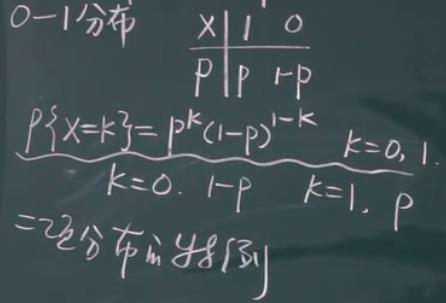 0-1分布
X | 1 0
P | P 1-P
P{X=k}=p^k(1-p)^{1-k} k=0,1.
k=0. 1-p k=1, p
=项分布的特例